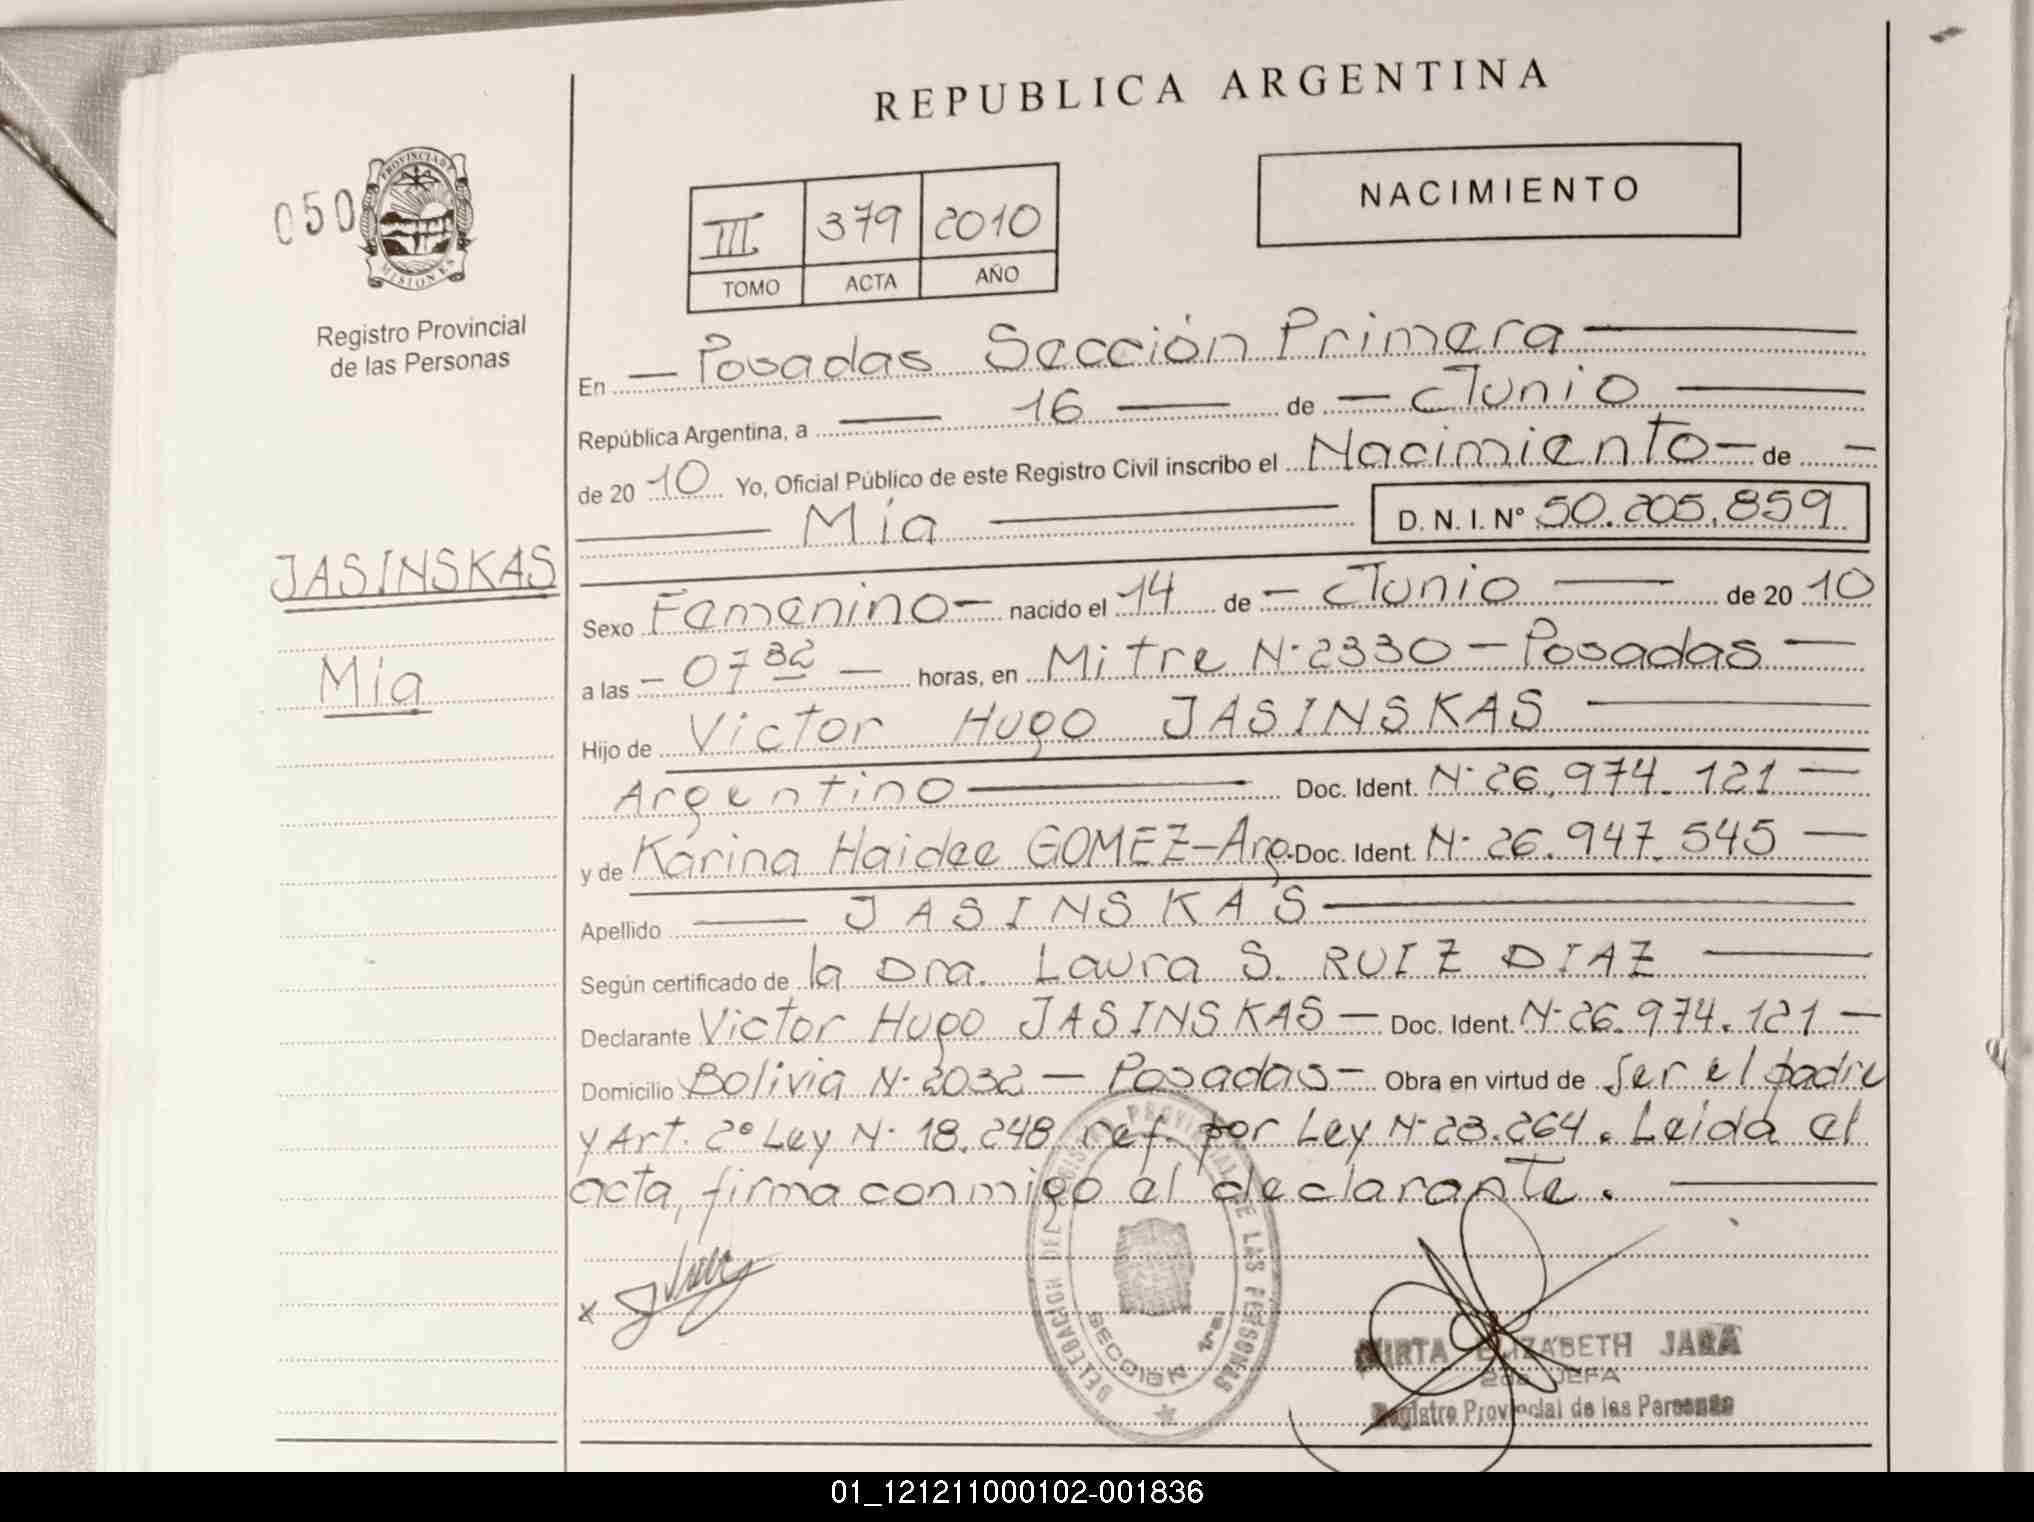 REPUBLICA ARGENTINA
NACIMIENTO
050
PROVINCIA DE MISIONES
III 379 2010
TOMO ACTA AÑO
Registro Provincial
de las Personas
En — Posadas Sección Primera —
República Argentina, a — 16 — de — Junio —
de 20 10 Yo, Oficial Público de este Registro Civil inscribo el Nacimiento — de —
— Mía — D. N. I. Nº 50.205.859
JASINSKAS
Mía
Sexo Femenino — nacido el 14 de — Junio — de 20 10
a las — 07 32 — horas, en Mitre N· 2330 — Posadas —
Hijo de Victor Hugo JASINSKAS —
Argentino — Doc. Ident. N· 26.974.121 —
y de Karina Haidee GOMEZ — Arg. Doc. Ident. N· 26.947.545 —
Apellido — JASINSKAS —
Según certificado de la Dra. Laura S. RUIZ DIAZ —
Declarante Victor Hugo JASINSKAS — Doc. Ident. N· 26.974.121 —
Domicilio Bolivia N· 2032 — Posadas — Obra en virtud de ser el padre
y Art. 2º Ley N· 18.248 ref. por Ley N· 23.264. Leida el
acta, firma conmigo el declarante. —
x
DELEGACION DEL REGISTRO PROVINCIAL DE LAS PERSONAS
SECCION 1ra.
MIRTA ELIZABETH JARA
2da JEFA
Registro Provincial de las Personas
01_121211000102-001836